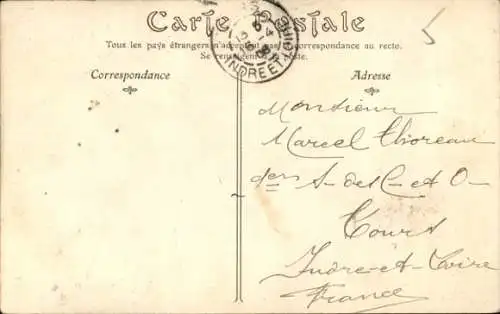 Carte Postale
Tous les pays étrangers n'acceptent pas la correspondance au recto.
Se renseigner à la poste.
Correspondance
Adresse
INDRE ET L
Monsieur
Marcel Thoreau
des
Tours
Indre-et-Loire
France